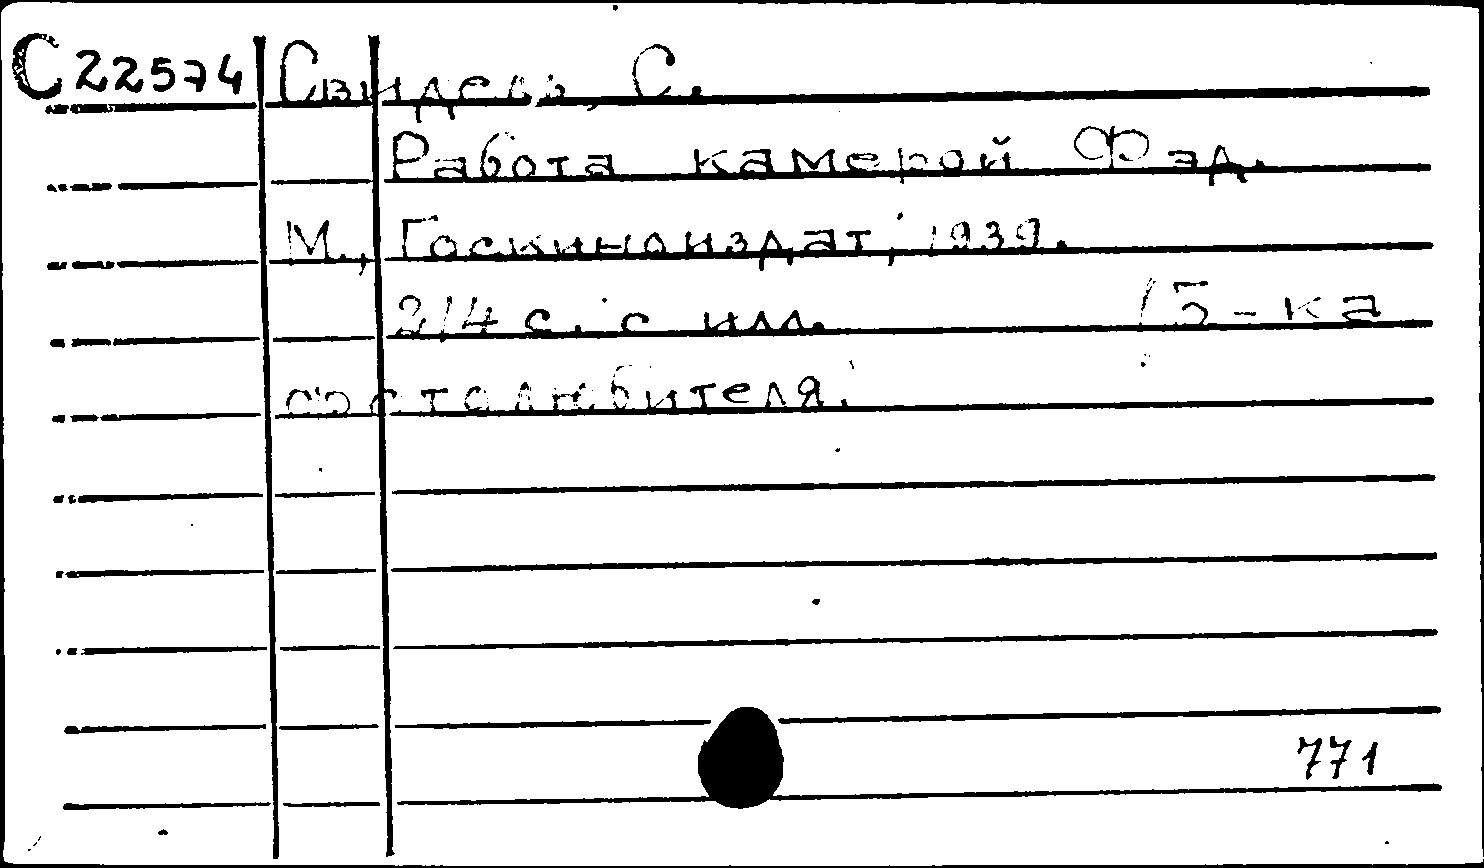 С22574 Свидель, С.
Работа камерой Фэд.
М., Госкиноиздат, 1939.
214 с. с илл. /Б-ка
фотолюбителя.
771